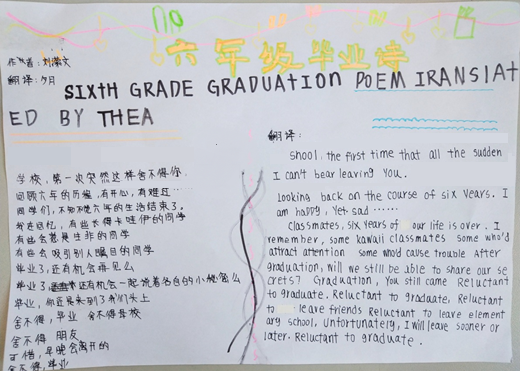 六年级毕业诗
作者:刘
翻译:夕月
SIXTH GRADE GRADUATION POEM IRANSlAT
ED BY THEA
学校,第一次突然这样舍不得你
回顾六年的历程,有开心,有难过……
同学们,不知不觉六年的生活结束了,
我还记忆,有些长得卡哇伊的同学
有些会惹是生非的同学
有些会吸引别人瞩目的同学
毕业了,还有机会再见么
毕业了,还有机会一起说着各自的小秘密么
毕业,你还是来到了我们头上
舍不得,毕业 舍不得母校
舍不得 朋友
可惜,早晚会离开的
舍不得,毕业
翻译:
Shool, the first time that all the sudden
I can't bear leaving You.
Looking back on the course of six Years. I
am happy, Yet sad ······
Classmates, six Years of our life is over. I
remember, some kawaii classmates some who'd
attract attention some who'd cause trouble After
graduation, will we still be able to share our se
crets? Graduation, You still came Reluctant
to graduate. Reluctant to graduate, Reluctant
to leave friends Reluctant to leave element
ary school, Unfortunately, I will leave sooner or
later. Reluctant to graduate.